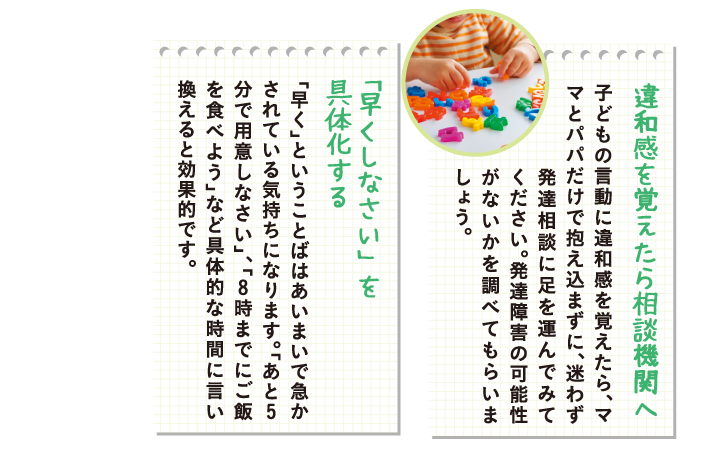 違和感を覚えたら相談機関へ
子どもの言動に違和感を覚えたら、マ
マとパパだけで抱え込まずに、迷わず
発達相談に足を運んでみて
ください。発達障害の可能性
がないかを調べてもらいま
しょう。
「早くしなさい」を
具体化する
「早く」ということばはあいまいで急か
されている気持ちになります。「あと5
分で用意しなさい」、「8時までにご飯
を食べよう」など具体的な時間に言い
換えると効果的です。